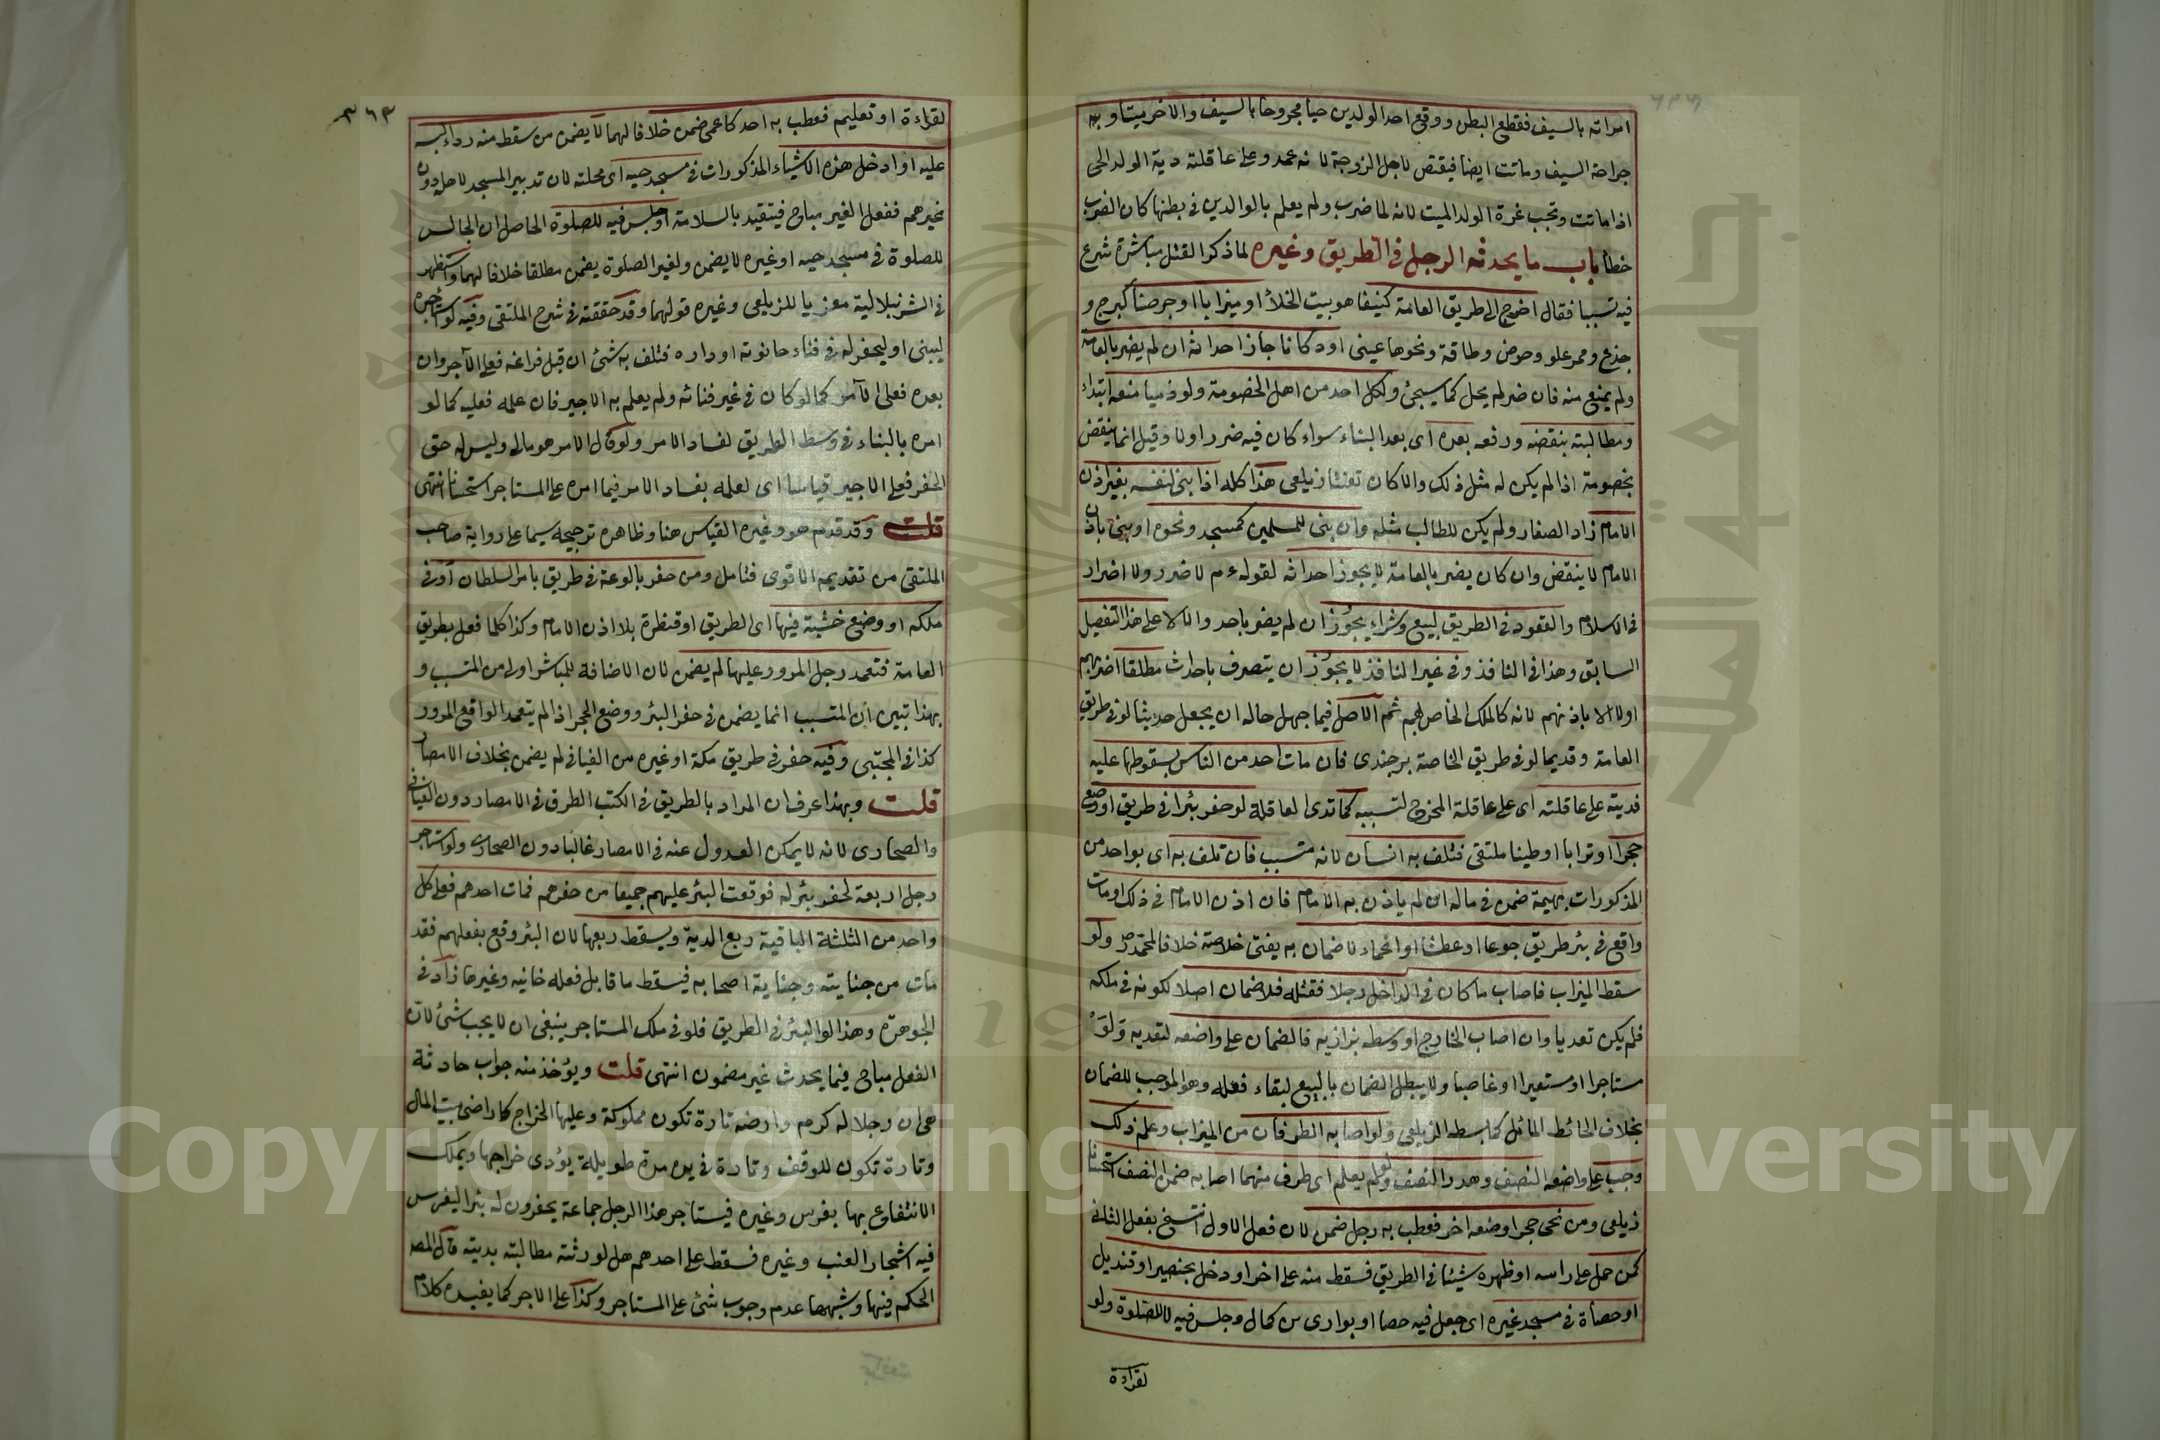 امراته بالسيف فقطع البطن ووقع احد الولدين حيا مجروحا بالسيف والاخر ميتا وبه
جراحة السيف وماتت ايضا فيقتص لاجل الزوجة لانه عمد وعلى عاقلته دية الولد الحى
اذا ماتت وتجب غرة الولد الميت لانه لما ضرب ولم يعلم بالوالدين فى بطنها كان الضرب
خطأ باب ما يحدثه الرجل فى الطريق وغيره لما ذكر القتل مباشرة شرع
فيه تسببا فقال اخرج الى طريق العامة كنيفا هو بيت الخلأ او ميزابا او جرصنا كبرج و
جذع وممر علو وحوض وطاقة ونحوها عينى او دكانا جاز احداثه ان لم يضر بالعامة
ولم يمنع منه فان ضر لم يحل كما سيجئ ولكل احد من اهل الخصومة ولو ذميا منعه ابتداء
ومطالبته بنقضه ورفعه بعده اى بعد البناء سواء كان فيه ضرر اولا وقيل انما ينقض
بخصومة اذا لم يكن له مثل ذلك والا كان تعنتا زيلعى هذا كله اذا بنى لنفسه بغير اذن
الامام زاد الصفار ولم يكن للطالب مثله وان بنى للمسلمين كمسجد ونحوه او بنى باذن
الامام لا ينقض وان كان يضر بالعامة لا يجوز احداثه لقوله ءم لا ضرر ولا اضرار
فى الاسلام والقعود فى الطريق لبيع وشراء يجوز ان لم يضر باحد والا لا على هذا التفصيل
السابق وهذا فى النافذ وفى غير النافذ لا يجوز ان يتصرف باحداث مطلقا اضر بهم
اولا الا باذنهم لانه كالملك الخاص لهم ثم الاصل فيما جهل حاله ان يجعل حديثا لو فى طريق
العامة وقديما لو فى طريق الخاصة برجندى فان مات احد من الناس بسقوطها عليه
فديته على عاقلته اى على عاقلة المخرج لتسببه كما تدى العاقلة لو حفر بئرا فى طريق او وضع
حجرا او ترابا او طينا ملتقى فتلف به انسان لانه متسبب فان تلف به اى بواحد من
المذكورات بهيمة ضمن فى ماله ان لم ياذن به الامام فان اذن الامام فى ذلك او مات
واقع فى بئر طريق جوعا او عطشا او اغماء لا ضمان به يفتى خلاصة خلافا لمحمد ولو
سقط الميزاب فاصاب ما كان فى الداخل رجلا فقتله فلا ضمان اصلا لكونه فى ملكه
فلم يكن تعديا وان اصاب الخارج او وسطه بزازيه فالضمان على واضعه لتعديه ولو
مستاجرا او مستعيرا او غاصبا ولا يبطل الضمان بالبيع لبقاء فعله وهو الموجب للضمان
بخلاف الحائط المائل كما بسطه الزيلعى ولو اصابه الطرفان من الميزاب وعلم ذلك
وجب على واضعه النصف وهدر النصف ولو لم يعلم اى طرف منهما اصابه ضمن النصف استحسانا
زيلعى ومن نحى حجرا وضعه اخر فعطب به رجل ضمن لان فعل الاول انتسخ بفعل الثانى
كمن حمل على راسه او ظهره شيئا فى الطريق فسقط منه على اخر او دخل بحصير او قنديل
او حصاة فى مسجد غيره اى جعل فيه حصا او بوارى س كمال وجلس فيه لا للصلوة ولو
لقراءة
٣٦٣
لقراءة او تعليم فعطب به احد كاعمى ضمن خلافا لهما لا يضمن من سقط منه رداء لبسه
عليه او ادخل هذه الاشياء المذكورات فى مسجد حيه اى محلته لان تدبير المسجد لاهله دون
غيرهم ففعل الغير مباح فيتقيد بالسلامة او جلس فيه للصلوة الحاصل ان الجالس
للصلوة فى مسجد حيه او غيره لا يضمن ولغير الصلوة يضمن مطلقا خلافا لهما واستظهر
فى الشرنبلالية معزيا للزيلعى وغيره قولهما وقد حققته فى شرح الملتقى وفيه لو استاجره
ليبنى او ليحفر له فى فناء حانوته او داره فتلف به شئ ان قبل فراغه فعلى الآجر وان
بعده فعلى الآمر كما لو كان فى غير فنائه ولم يعلم به الاجير فان علمه فعليه كما لو
امره بالبناء فى وسط الطريق لفساد الامر ولو قال الامر هو مالى وليس له حق
الحفر فعلى الاجير قياسا اى لعلمه بفساد الامر فيما امره على المستاجر استحسانا انتهى
قلت وقد قدم هو وغيره القياس هنا وظاهره ترجيحه سيما على رواية صاحب
الملتقى من تقديمه الاقوى فتامل ومن حفر بالوعة فى طريق بامر السلطان او فى
ملكه او وضع خشبة فيها اى الطريق او قنطرة بلا اذن الامام وكذا كلما فعل بطريق
العامة فتعمد رجل المرور عليها لم يضمن لان الاضافة للمباشر اولى من المتسبب و
بهذا تبين ان المتسبب انما يضمن فى حفر البئر ووضع الحجر اذا لم يتعمد الواقع المرور
كذا فى المجتبى وفيه حفر فى طريق مكة او غيره من الفيافى لم يضمن بخلاف الامصار
قلت وبهذا عرف ان المراد بالطريق فى الكتب الطرق فى الامصار دون الفيافى
والصحارى لانه لا يمكن العدول عنه فى الامصار غالبا دون الصحارى ولو استاجر
رجل اربعة لحفر بئر له فوقعت البئر عليهم جميعا من حفرهم فمات احدهم فعلى كل
واحد من الثلثة الباقية ربع الدية ويسقط ربعها لان البئر وقع بفعلهم فقد
مات من جنايته وجناية اصحابه فيسقط ما قابل فعله خانيه وغيرها زاد فى
الجوهرة وهذا لو البئر فى الطريق فلو فى ملك المستاجر ينبغى ان لا يجب شئ لان
الفعل مباح فيما يحدث غير مضمون انتهى قلت ويؤخذ منه جواب حادثة
هى ان رجلا له كرم وارضه تارة تكون مملوكة وعليها الخراج كاراضى بيت المال
وتارة تكون للوقف وتارة فى يده مدة طويلة يؤدى خراجها ويملك
الانتفاع بها بغرس وغيره فيستاجر هذا الرجل جماعة يحفرون له بئرا ليغرس
فيه اشجار العنب وغيره فسقط على احدهم هل لورثته مطالبته بديته قال المصـ
الحكم فيها وشبهها عدم وجوب شئ على المستاجر وكذا على الاجر كما يفيده كلام
Copyright © King Saud University